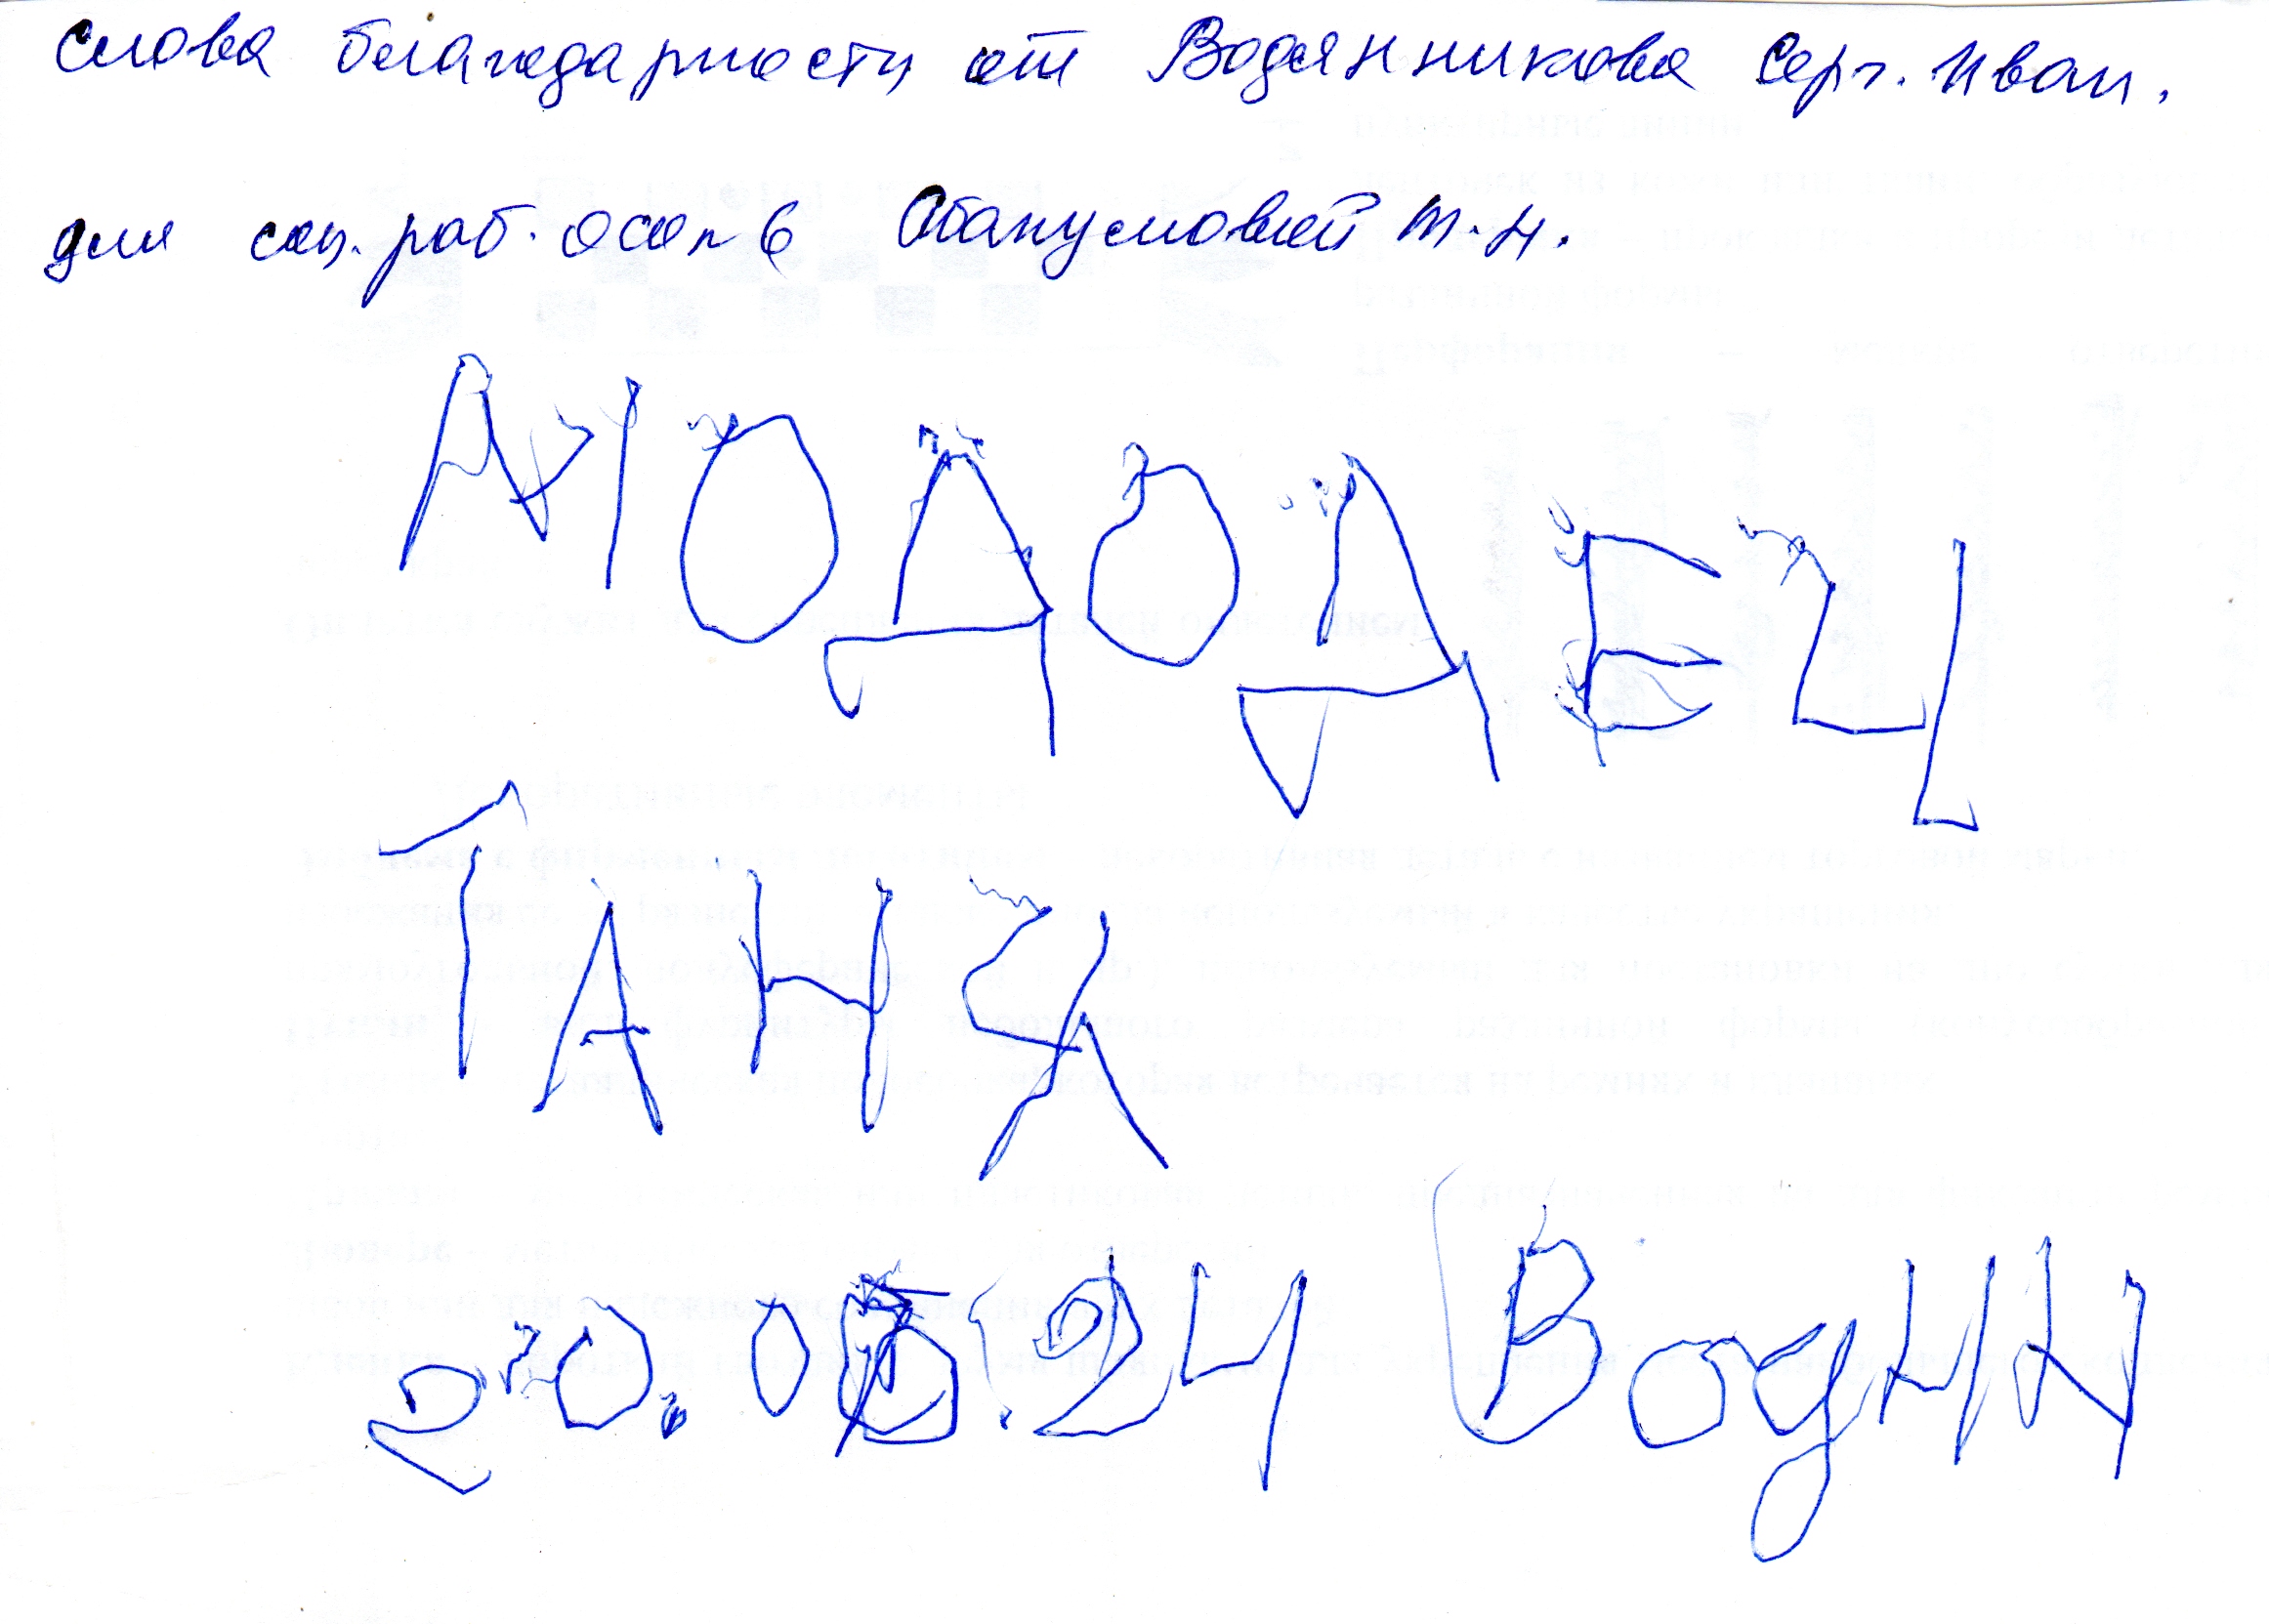 Слова благодарности от Водянникова Серг. Иван.
для соц. раб. ОСОП 6 Абакумовой Т.Н.
МОДОДЕЦ
ТАНЯ
20. 05.24